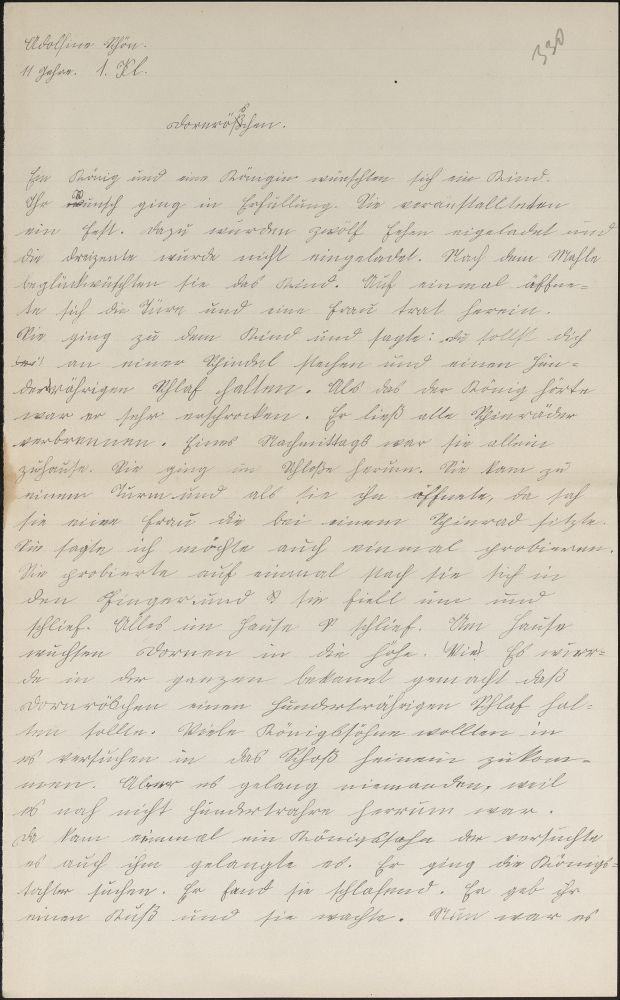 Adolfine Schön.
330
11 Jahre. 1. Kl.
Dornröschen.
Ein König und eine Königin wünschten sich ein Kind.
Ihr Wunsch ging in Erfüllung. Sie veranstallteten
ein Fest. Dazu wurden zwölf Fehen eigeladet und
die dreizente wurde nicht eingeladet. Nach dem Mahle
beglückwüschten sie das Kind. Auf einmal öffne-
te sich die Türe und eine Frau trat herein.
Sie ging zu dem Kind und sagte: du sollst dich
an einer Schindel stechen und einen hun-
dertröhrigen Schlaf halten. Als das der König hörte
war er sehr erschrocken. Er ließ alle Spinräder
verbrennen. Eines Nachmittags war sie allein
zuhause. Sie ging im Schloße herum. Sie kam zu
einem Turm und als sie ihn öffnete, da sah
sie eine Frau die bei einem Spinrad sitzte.
Sie sagte ich möchte auch einmal probieren.
Sie probierte auf einmal stach sie sich in
den Finger und sie fiell um und
schlief. Alles im Hause schlief. Um Hause
wuchsen Dornen in die höhe. Es wurr-
de in der ganzen bekannt gemacht daß
Dornröschen einen hundertrährigen Schlaf hal-
ten sollte. Viele Königssöhne wollten in
es versuchen in das Schoß heinein zukom-
men. Aber es gelang niemanden, weil
es nah nicht hundertrahre herrum war.
Da kam einmal ein Königssohn der versuchte
es auch ihm gelangte es. Er ging die Königs-
tahter suchen. Er fand sie schlafend. Er gab ihr
einen Kuß und sie wachte. Nun war es